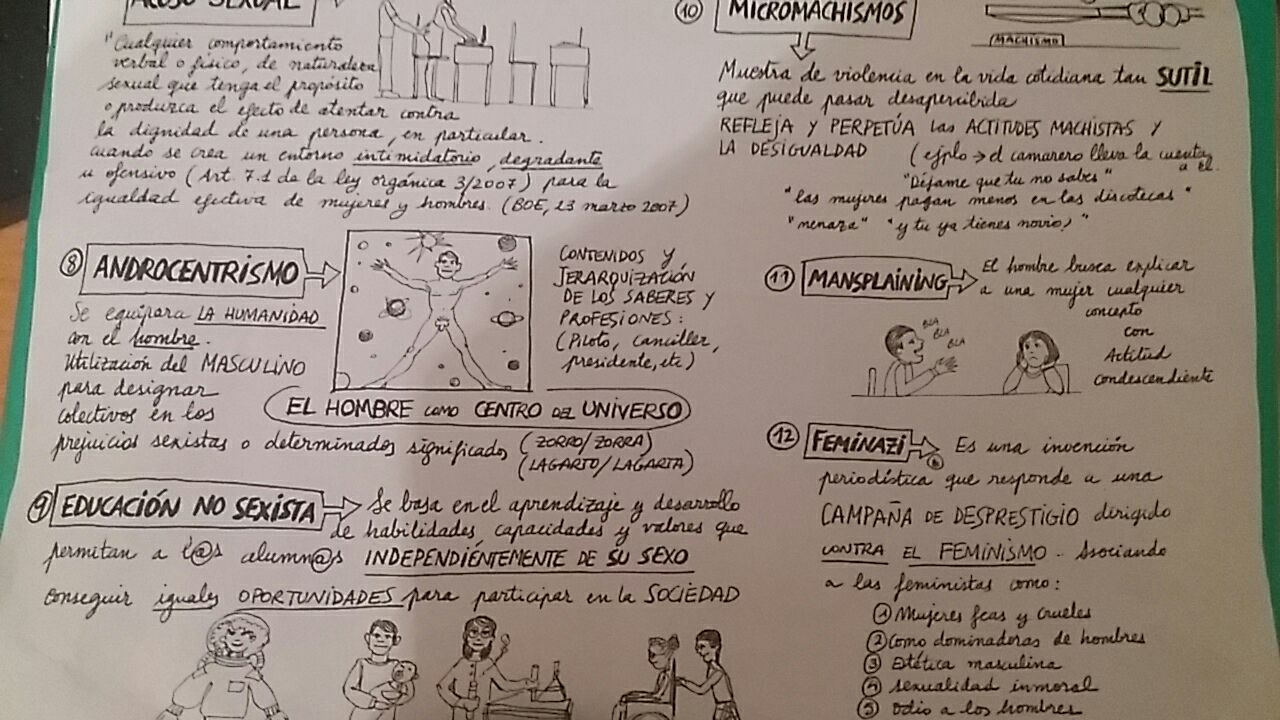 ACOSO SEXUAL
"Cualquier comportamiento
verbal o físico, de naturaleza
sexual que tenga el propósito
o produzca el efecto de atentar contra
la dignidad de una persona, en particular.
cuando se crea un entorno intimidatorio, degradante
u ofensivo (Art. 7.1 de la ley orgánica 3/2007) para la
igualdad efectiva de mujeres y hombres. (BOE, 23 marzo 2007)
8 ANDROCENTRISMO
Se equipara LA HUMANIDAD
con el hombre.
Utilización del MASCULINO
para designar
colectivos en los
prejuicios sexistas o determinados significados (ZORRO/ZORRA)
(LAGARTO/LAGARTA)
CONTENIDOS Y
JERARQUIZACIÓN
DE LOS SABERES Y
PROFESIONES:
(Piloto, canciller,
presidente, etc)
EL HOMBRE COMO CENTRO DEL UNIVERSO
9 EDUCACIÓN NO SEXISTA
Se basa en el aprendizaje y desarrollo
de habilidades, capacidades y valores que
permitan a l@s alumn@s INDEPENDIENTEMENTE DE SU SEXO
conseguir iguales OPORTUNIDADES para participar en la SOCIEDAD
10 MICROMACHISMOS
MACHISMO
Muestra de violencia en la vida cotidiana tan SUTIL
que puede pasar desapercibida
REFLEJA Y PERPETÚA las ACTITUDES MACHISTAS Y
LA DESIGUALDAD (ejplo → el camarero lleva la cuenta
a él.
"Déjame que tu no sabes"
"las mujeres pagan menos en las discotecas"
"nenaza" "y tu ya tienes novio?"
11 MANSPLAINING
El hombre busca explicar
a una mujer cualquier
concepto
con
Actitud
condescendiente
BLA
BLA
BLA
12 FEMINAZI
Es una invención
periodística que responde a una
CAMPAÑA DE DESPRESTIGIO dirigido
CONTRA EL FEMINISMO. Asociando
a las feministas como:
1 Mujeres feas y crueles
2 Como dominadoras de hombres
3 Estética masculina
4 sexualidad inmoral
5 odio a los hombres